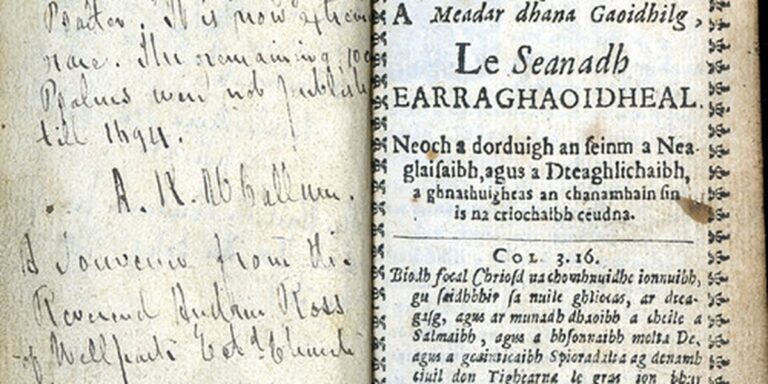 Psalter. It is now extrem
rare. The remaining 100
Psalms were not publish
till 1694.
A. K. McCallum.
A Souvenir from the
Reverend William Ross
of Wellpark Estd Church
A Meadar dhana Gaoidhilg,
Le Seanadh
EARRAGHAOIDHEAL.
Neoch a dorduigh an ſeinm a Nea-
glaiſaibh, agus a Dteaghlichaibh,
a ghnathuigheas an chanamhain ſin
is na criochaibh ceudna.
COL 3.16.
Biodh focal Chrioſd na chomhnuidhe ionnuibh,
gu ſaidhbhir ſa nuile ghliocas, ar dtea-
gaſg, agus ar munadh dhaoibh a cheile a
Salmaibh, agus a bhfonnaibh molta De,
agus a gcainticaibh Spioradalta ag denamh
ciuil don Tighearna le gras ion bhar